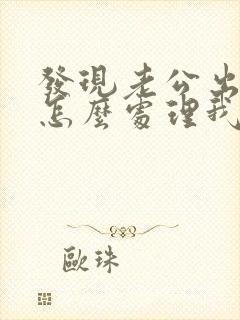 發現老公出
怎麼處理我
歐珠